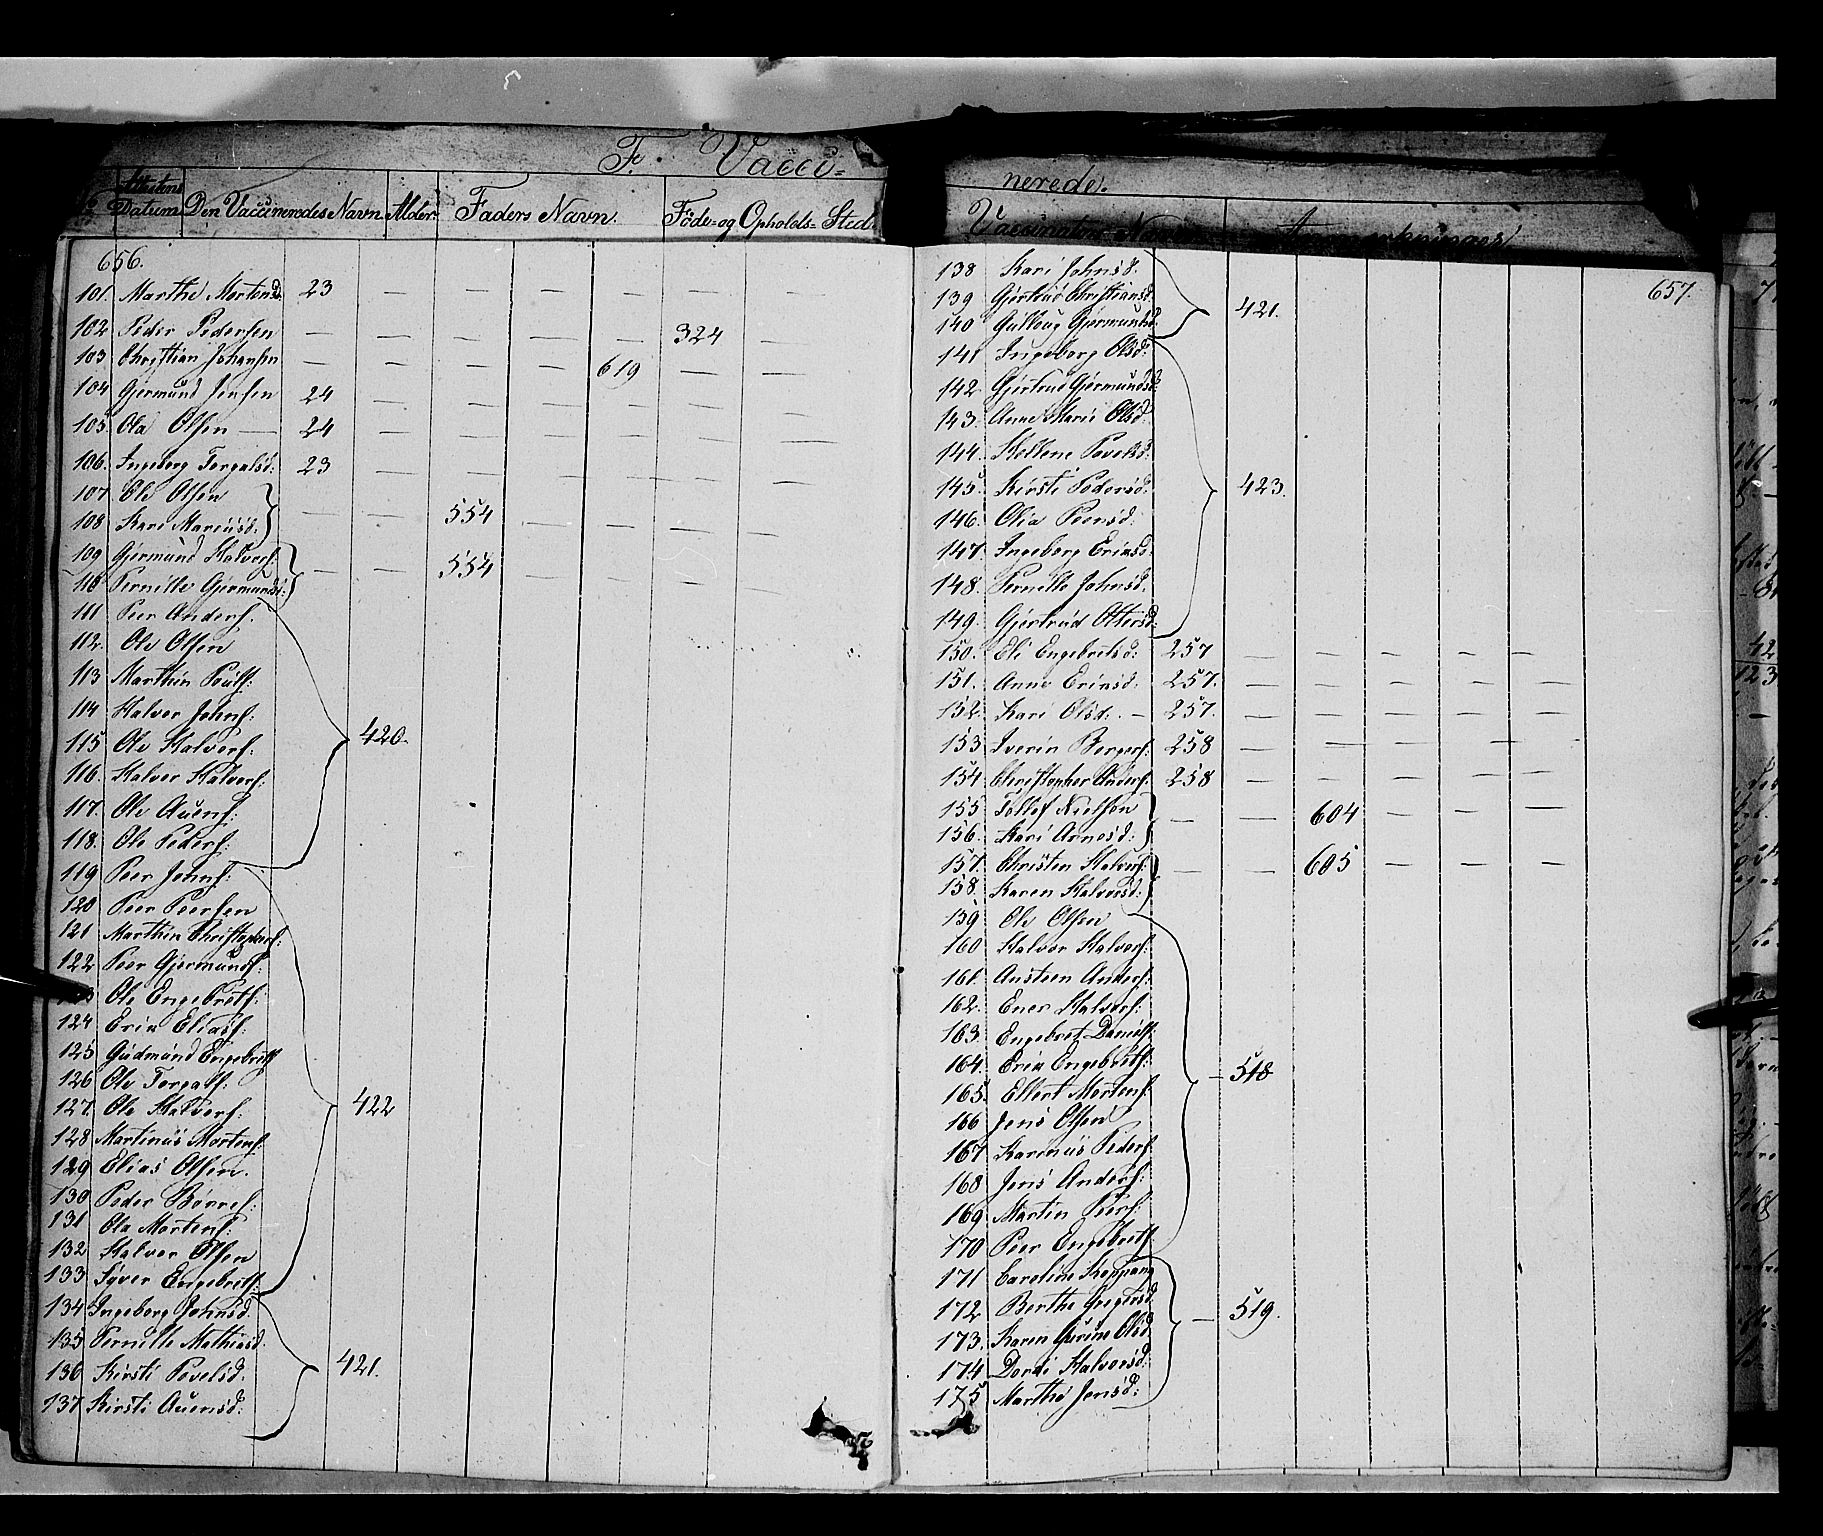 F. Vacci-
nerede.
Attestens Datum Den Vaccineredes Navn. Alder. Faders Navn. Föde- og Opholds-Sted.
Vaccinators Navn Anmærkninger
656.
101. Marthe Mortensd. 23 — — — — — — —
102 Peder Pedersen — — — — — 324 —
103 Christian Johansen — — — — 619 — —
104 Gjermund Jensen 24 — — — — — —
105. Ola Olsen — 24 — — — — — —
106. Ingeborg Torgalsd. 23 — — — — — —
107. Ole Olsen
108. Kari Mariusd. — — 554 — — —
109. Gjermund Halvors.
110 Pernille Gjermundsd. — — 554 — — —
111 Peer Anders.
112. Ole Olsen
113 Marthin Pouls.
114 Halvor Johns.
115 Ole Halvors. 420.
116. Halvor Halvors.
117. Ole Auens.
118. Ole Peders.
119 Peer Johns.
120 Peer Peersen
121 Marthin Christophers.
122 Peer Gjermunds.
Ole Engebrets.
124 Erik Elias.
125 Gudmund Engebrets
126 Ole Torgals.
127. Ole Halvors. 422
128 Martinus Mortens.
129 Elias Olsen.
130 Peder Börres.
131 Ola Mortens.
132 Halvor Olsen
133 Syver Engebrets.
134 Ingeborg Johnsd.
135 Pernille Mathiasd.
136 Kirsti Povelsd. 421.
137 Kirsti Auensd.
657.
138 Kari Johnsd.
139 Gjertrud Christiansd.
140 Gulloug Gjermundsd. 421.
141 Ingeborg Olsd.
142 Gjertrud Gjermundsd.
143. Anne Marie Olsd.
144. Hellene Povelsd.
145. Kirsti Pedersd. 423.
146. Olia Peersd.
147. Ingeborg Eriksd.
148. Pernille Johnsd.
149. Gjertrud Ottersd.
150. Eli Engebretsd. 257 — — — — —
151. Anne Eriksd. 257. — — — — —
152. Kari Olsd. — 257. — — — — —
153 Iverin Bergers. 258 — — — — —
154. Christopher Anders. 258 — — — — —
155 Tollef Nielsen
156. Kari Arnesd. — — 604 — — —
157. Christen Halvors.
158. Karen Halvorsd. — — 605 — — —
159 Ole Olsen
160 Halvor Halvors.
161. Austeen Anders.
162. Ener Halvors.
163. Engebret Daniels.
164. Erik Engebrets.
165. Ellert Mortens. — 518
166 Jens Olsen
167 Karinus Peders.
168 Jens Anders.
169 Martin Peers.
170 Peer Engebrets.
171 Caroline Koppang
172 Berthe Gregersd. — 519.
173. Karen Gurine Olsd.
174 Dordi Halvorsd.
175 Marthe Jensd.